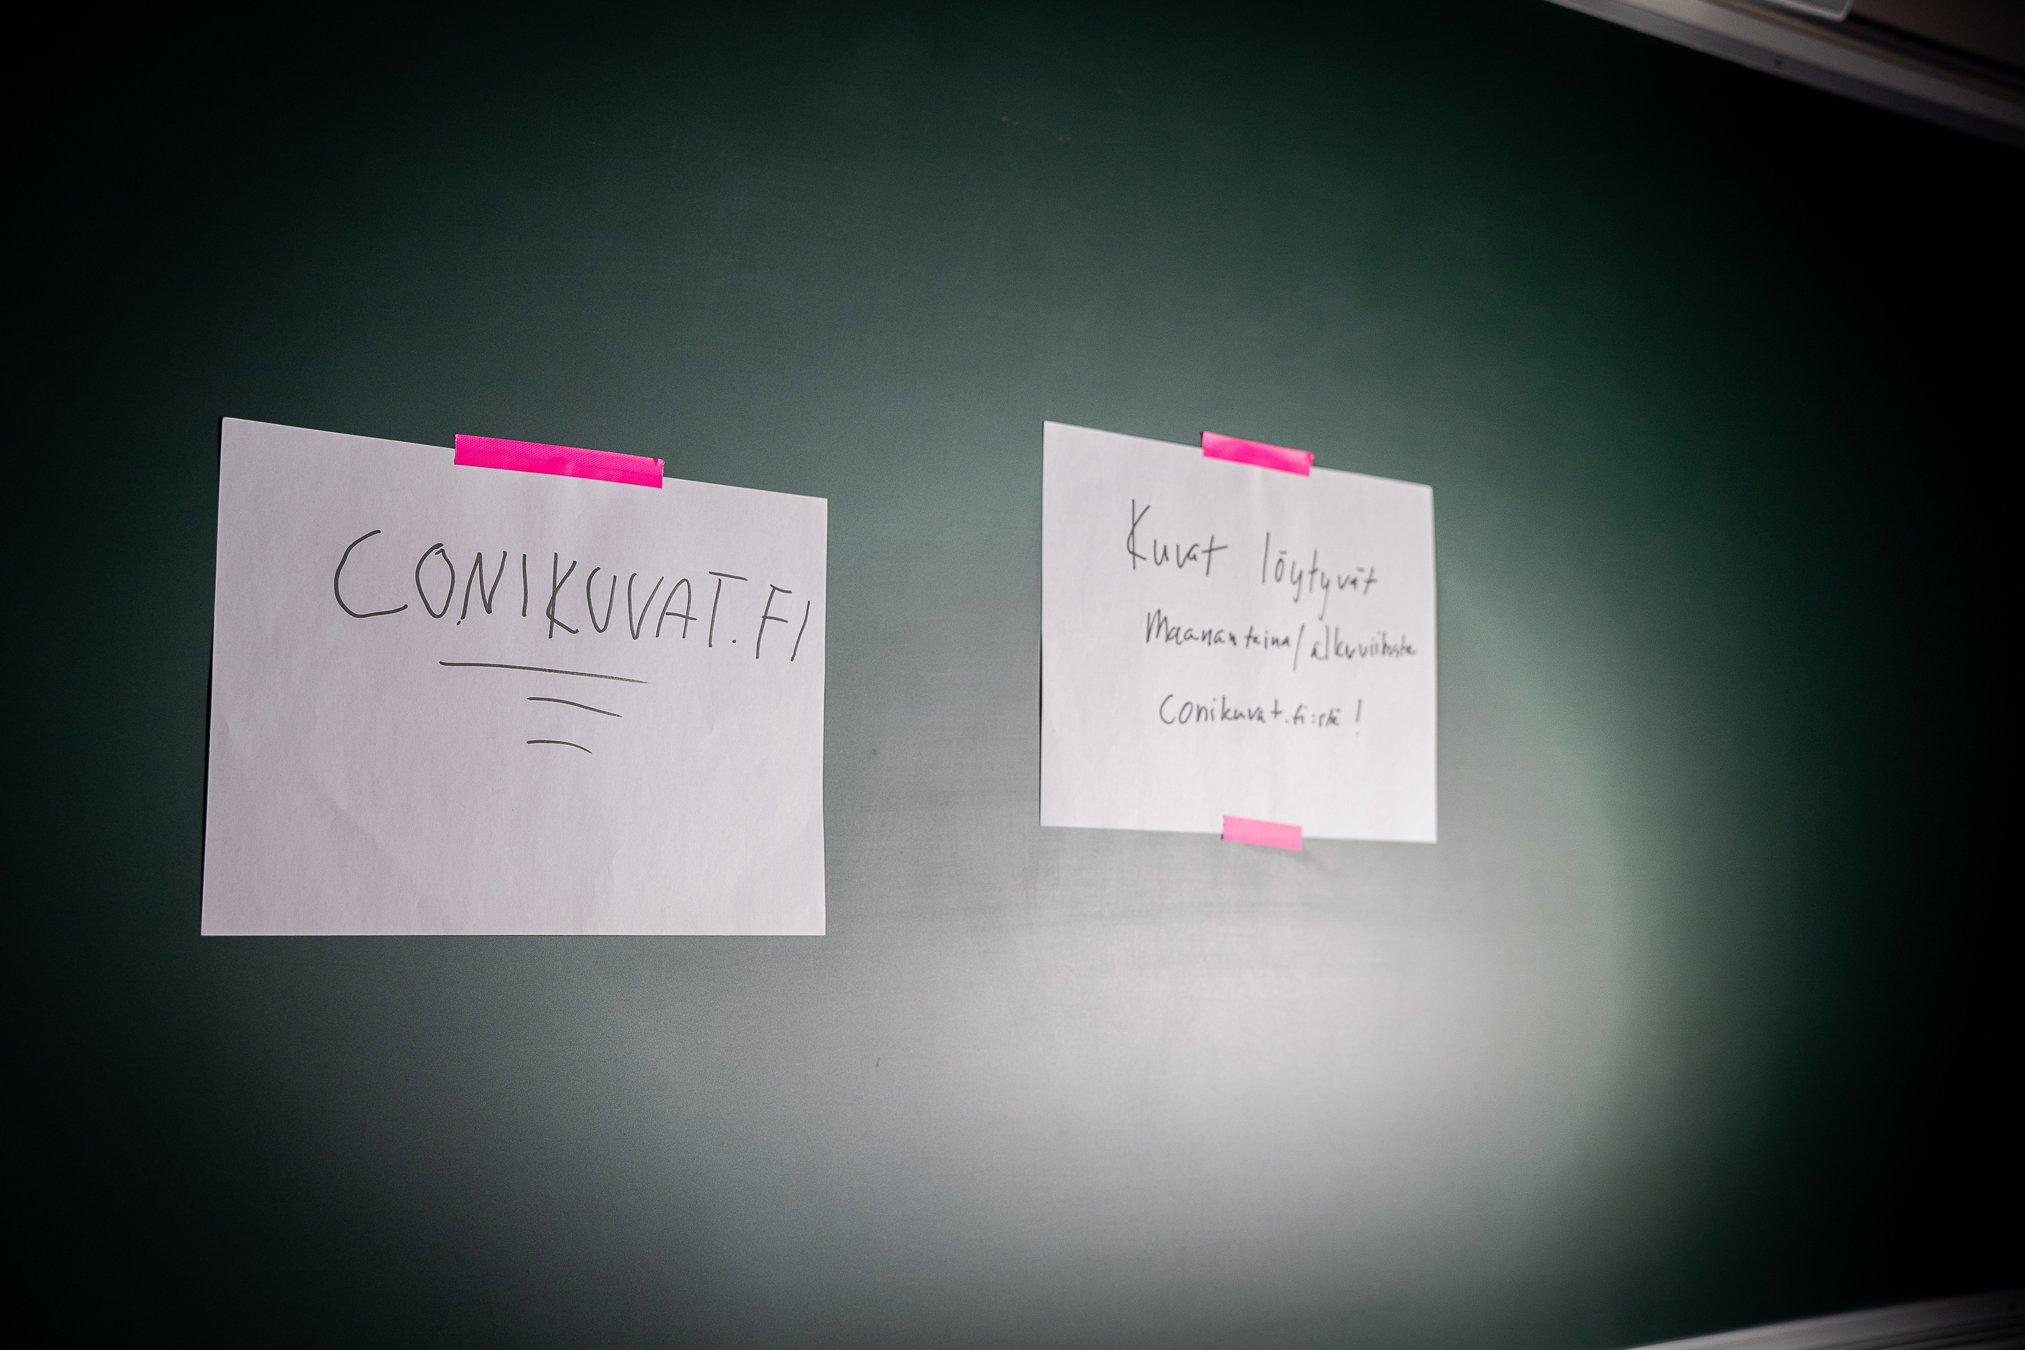 CONIKUVAT.FI
Kuvat löytyvät
Maanantaina/alkuviikosta
Conikuvat.fi:stä!